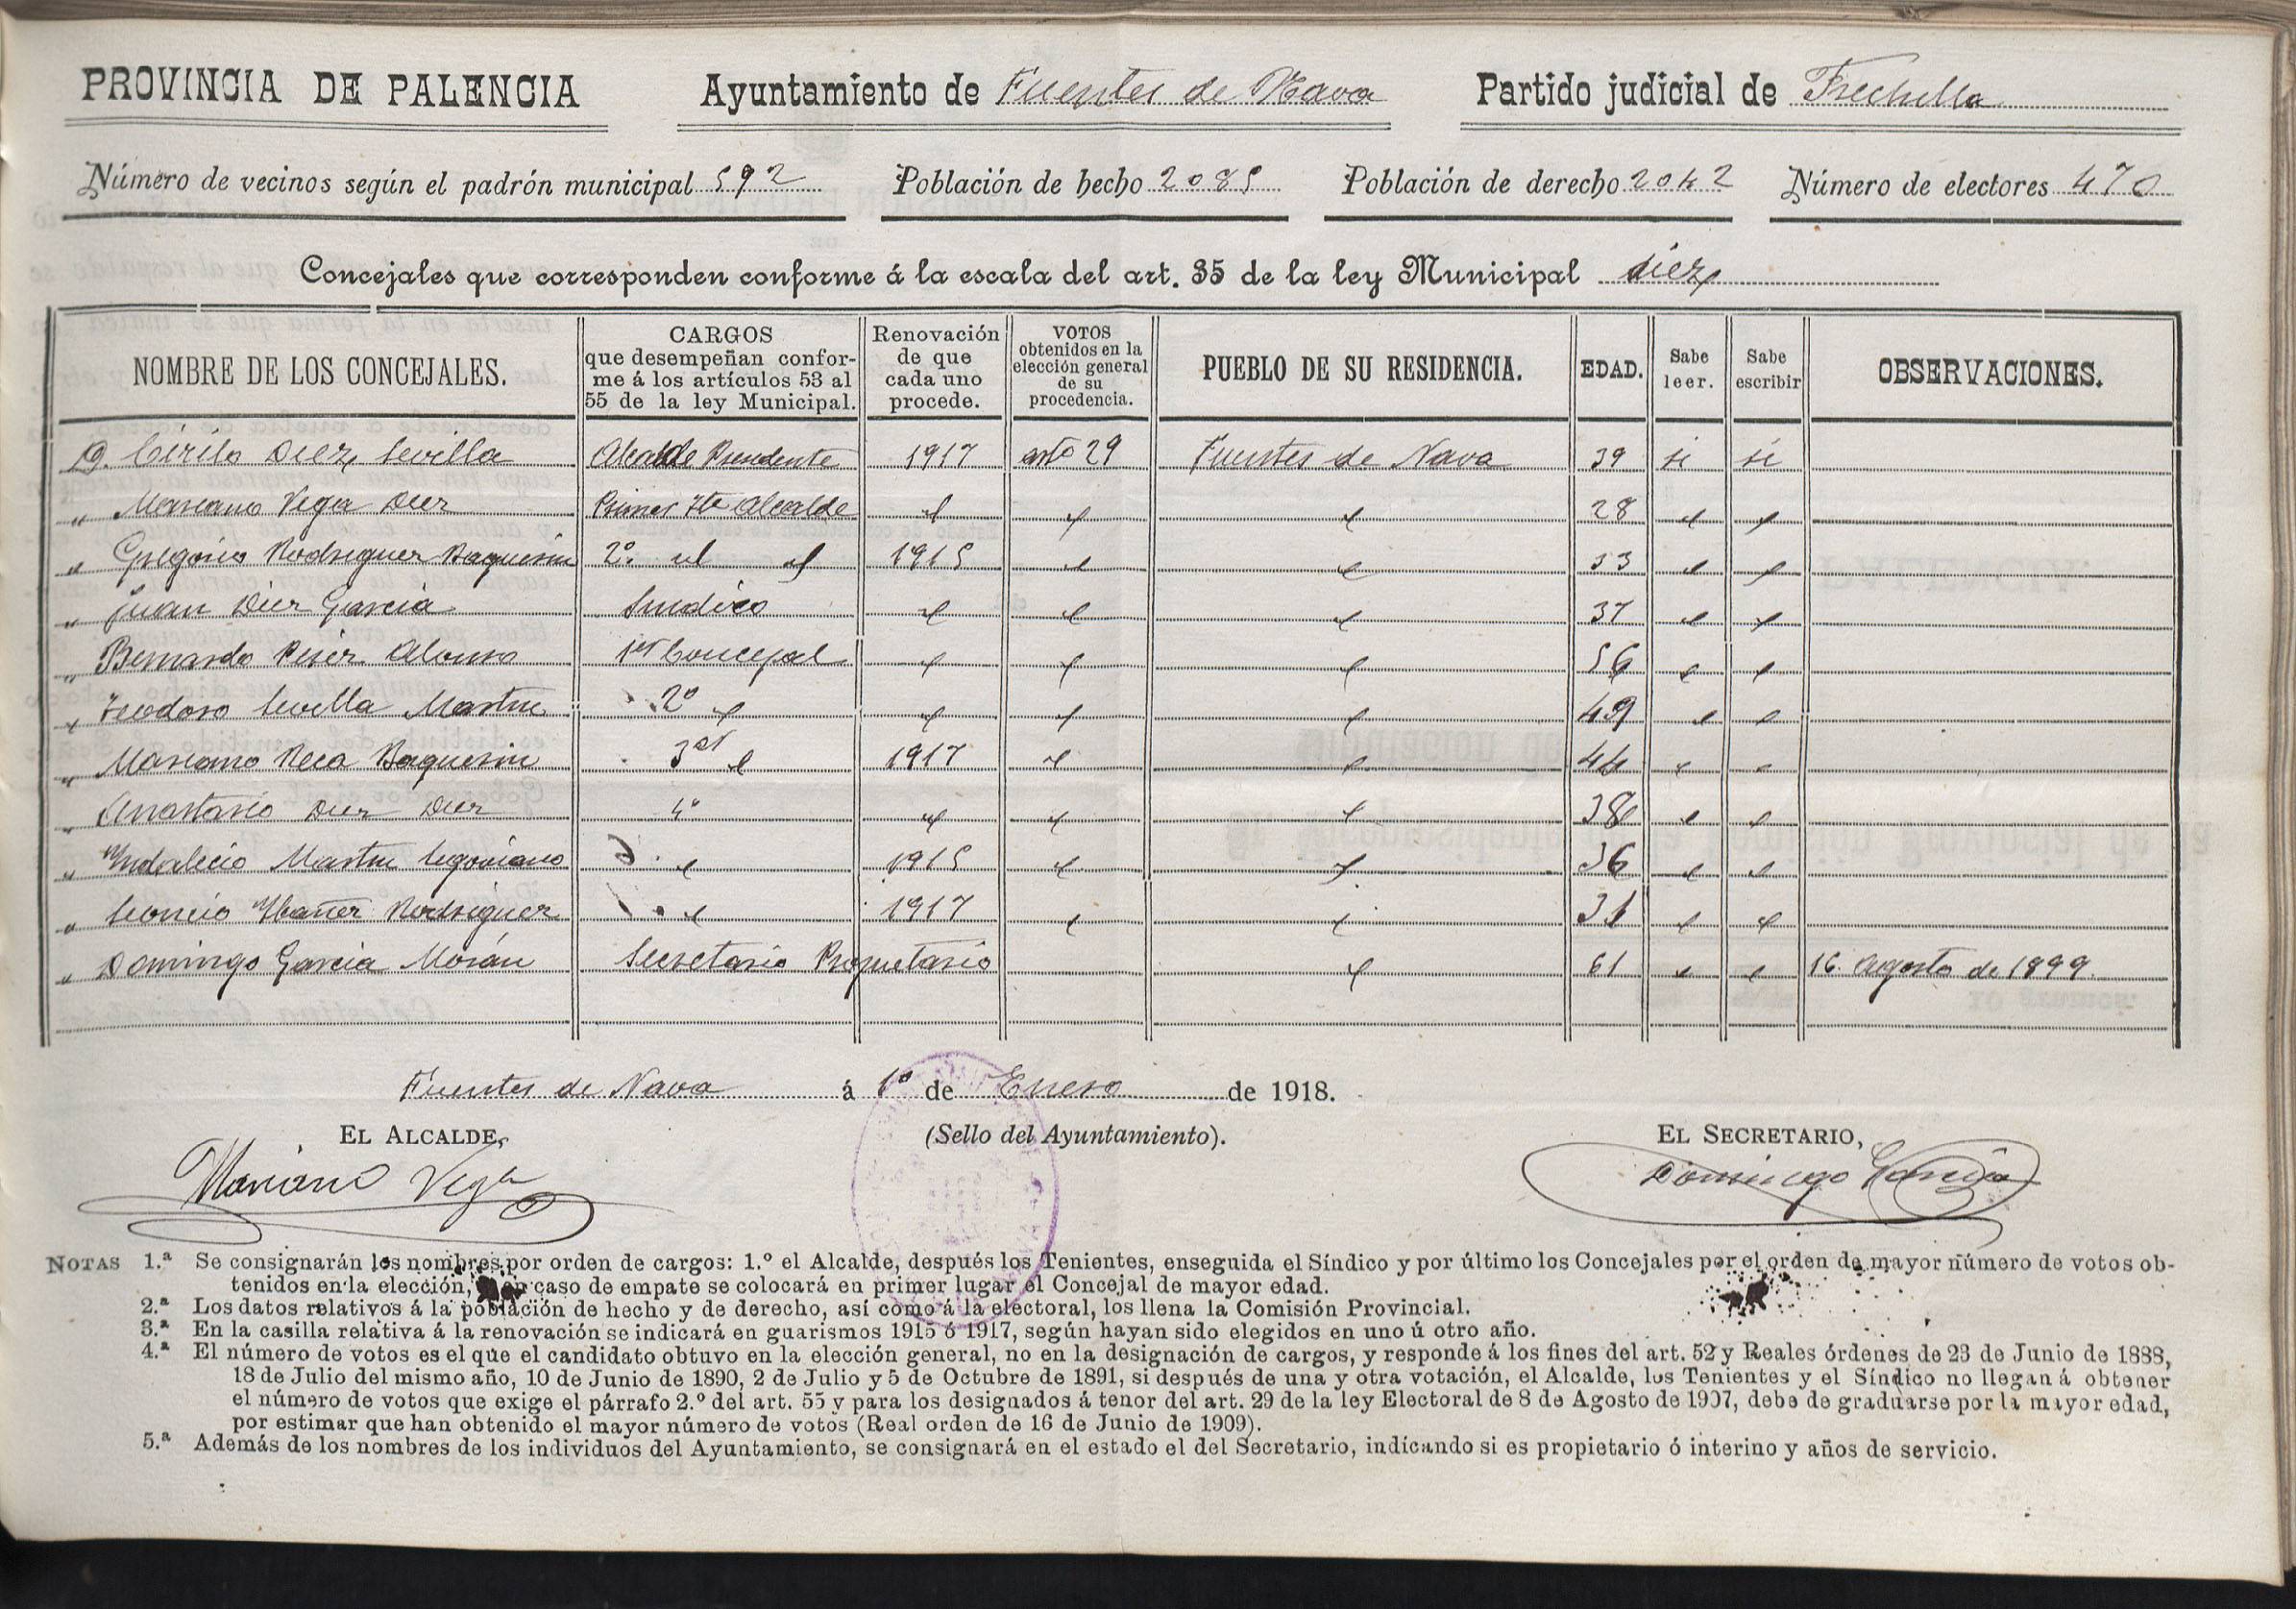 PROVINCIA DE PALENCIA Ayuntamiento de Fuentes de Nava Partido judicial de Frechilla
Número de vecinos según el padrón municipal 592 Población de hecho 2085 Población de derecho 2042 Número de electores 470
Concejales que corresponden conforme á la escala del art. 35 de la ley Municipal diez
NOMBRE DE LOS CONCEJALES. CARGOS que desempeñan conforme á los artículos 53 al 55 de la ley Municipal. Renovación de que cada uno procede. VOTOS obtenidos en la elección general de su procedencia. PUEBLO DE SU RESIDENCIA. EDAD. Sabe leer. Sabe escribir OBSERVACIONES.
D. Cirilo Diez Sevilla Alcalde Presidente 1917 arto 29 Fuentes de Nava 39 si si
" Mariano Vega Diez Primer Tte Alcalde id id id 28 id id
" Gregorio Rodriguez Baquerin 2º id id 1915 id id 33 id id
" Juan Diez Garcia Sindico id id id 37 id id
" Bernardo Perez Alonso 1er Concejal id id id 56 id id
" Teodoro Sevilla Martin 2º id id id id 49 id id
" Mariano Reca Baquerin 3er id 1917 id id 44 id id
" Anastasio Diez Diez 4º id id id 38 id id
" Yndalecio Martin Segoviano id 1915 id id 36 id id
" Leoncio Ybañez Rodriguez id 1917 id id 31 id id
" Domingo Garcia Morán Secretario Propietario id 61 id id 16 Agosto de 1899.
Fuentes de Nava á 1º de Enero de 1918.
EL ALCALDE, (Sello del Ayuntamiento). EL SECRETARIO,
Mariano Vega Domingo Garcia
NOTAS 1.ª Se consignarán los nombres por orden de cargos: 1.º el Alcalde, después los Tenientes, enseguida el Síndico y por último los Concejales por el orden de mayor número de votos ob-
tenidos en la elección, en caso de empate se colocará en primer lugar el Concejal de mayor edad.
2.ª Los datos relativos á la población de hecho y de derecho, así como á la electoral, los llena la Comisión Provincial.
3.ª En la casilla relativa á la renovación se indicará en guarismos 1915 ó 1917, según hayan sido elegidos en uno ú otro año.
4.ª El número de votos es el que el candidato obtuvo en la elección general, no en la designación de cargos, y responde á los fines del art. 52 y Reales órdenes de 23 de Junio de 1888,
18 de Julio del mismo año, 10 de Junio de 1890, 2 de Julio y 5 de Octubre de 1891, si después de una y otra votación, el Alcalde, los Tenientes y el Síndico no llegan á obtener
el número de votos que exige el párrafo 2.º del art. 55 y para los designados á tenor del art. 29 de la ley Electoral de 8 de Agosto de 1907, debe de graduarse por la mayor edad,
por estimar que han obtenido el mayor número de votos (Real orden de 16 de Junio de 1909).
5.ª Además de los nombres de los individuos del Ayuntamiento, se consignará en el estado el del Secretario, indicando si es propietario ó interino y años de servicio.